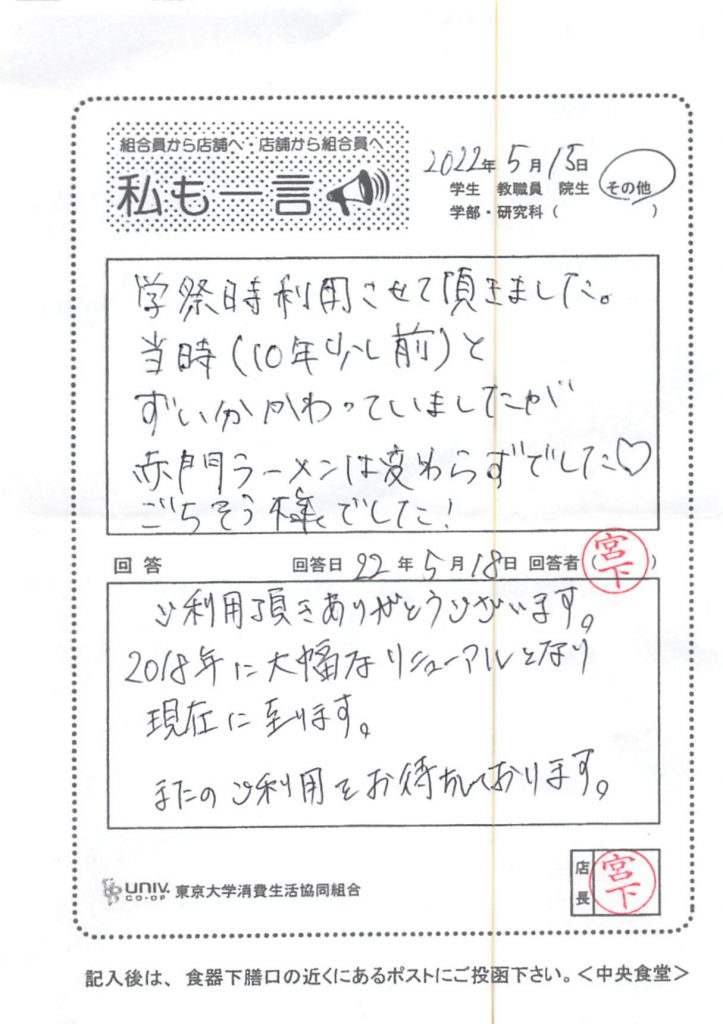 組合員から店舗へ・店舗から組合員へ
私も一言
2022年5月15日
学生 教職員 院生 その他
学部・研究科（ ）
学祭時利用させて頂きました。
当時（10年少し前）と
ずい分かわっていましたが
赤門ラーメンは変わらずでした♡
ごちそう様でした！
回答 回答日 22年5月18日 回答者（宮下）
ご利用頂きありがとうございます。
2018年に大幅なリニューアルとなり
現在に至ります。
またのご利用をお待ちしております。
UNIV. CO-OP 東京大学消費生活協同組合
店長 宮下
記入後は、食器下膳口の近くにあるポストにご投函下さい。＜中央食堂＞